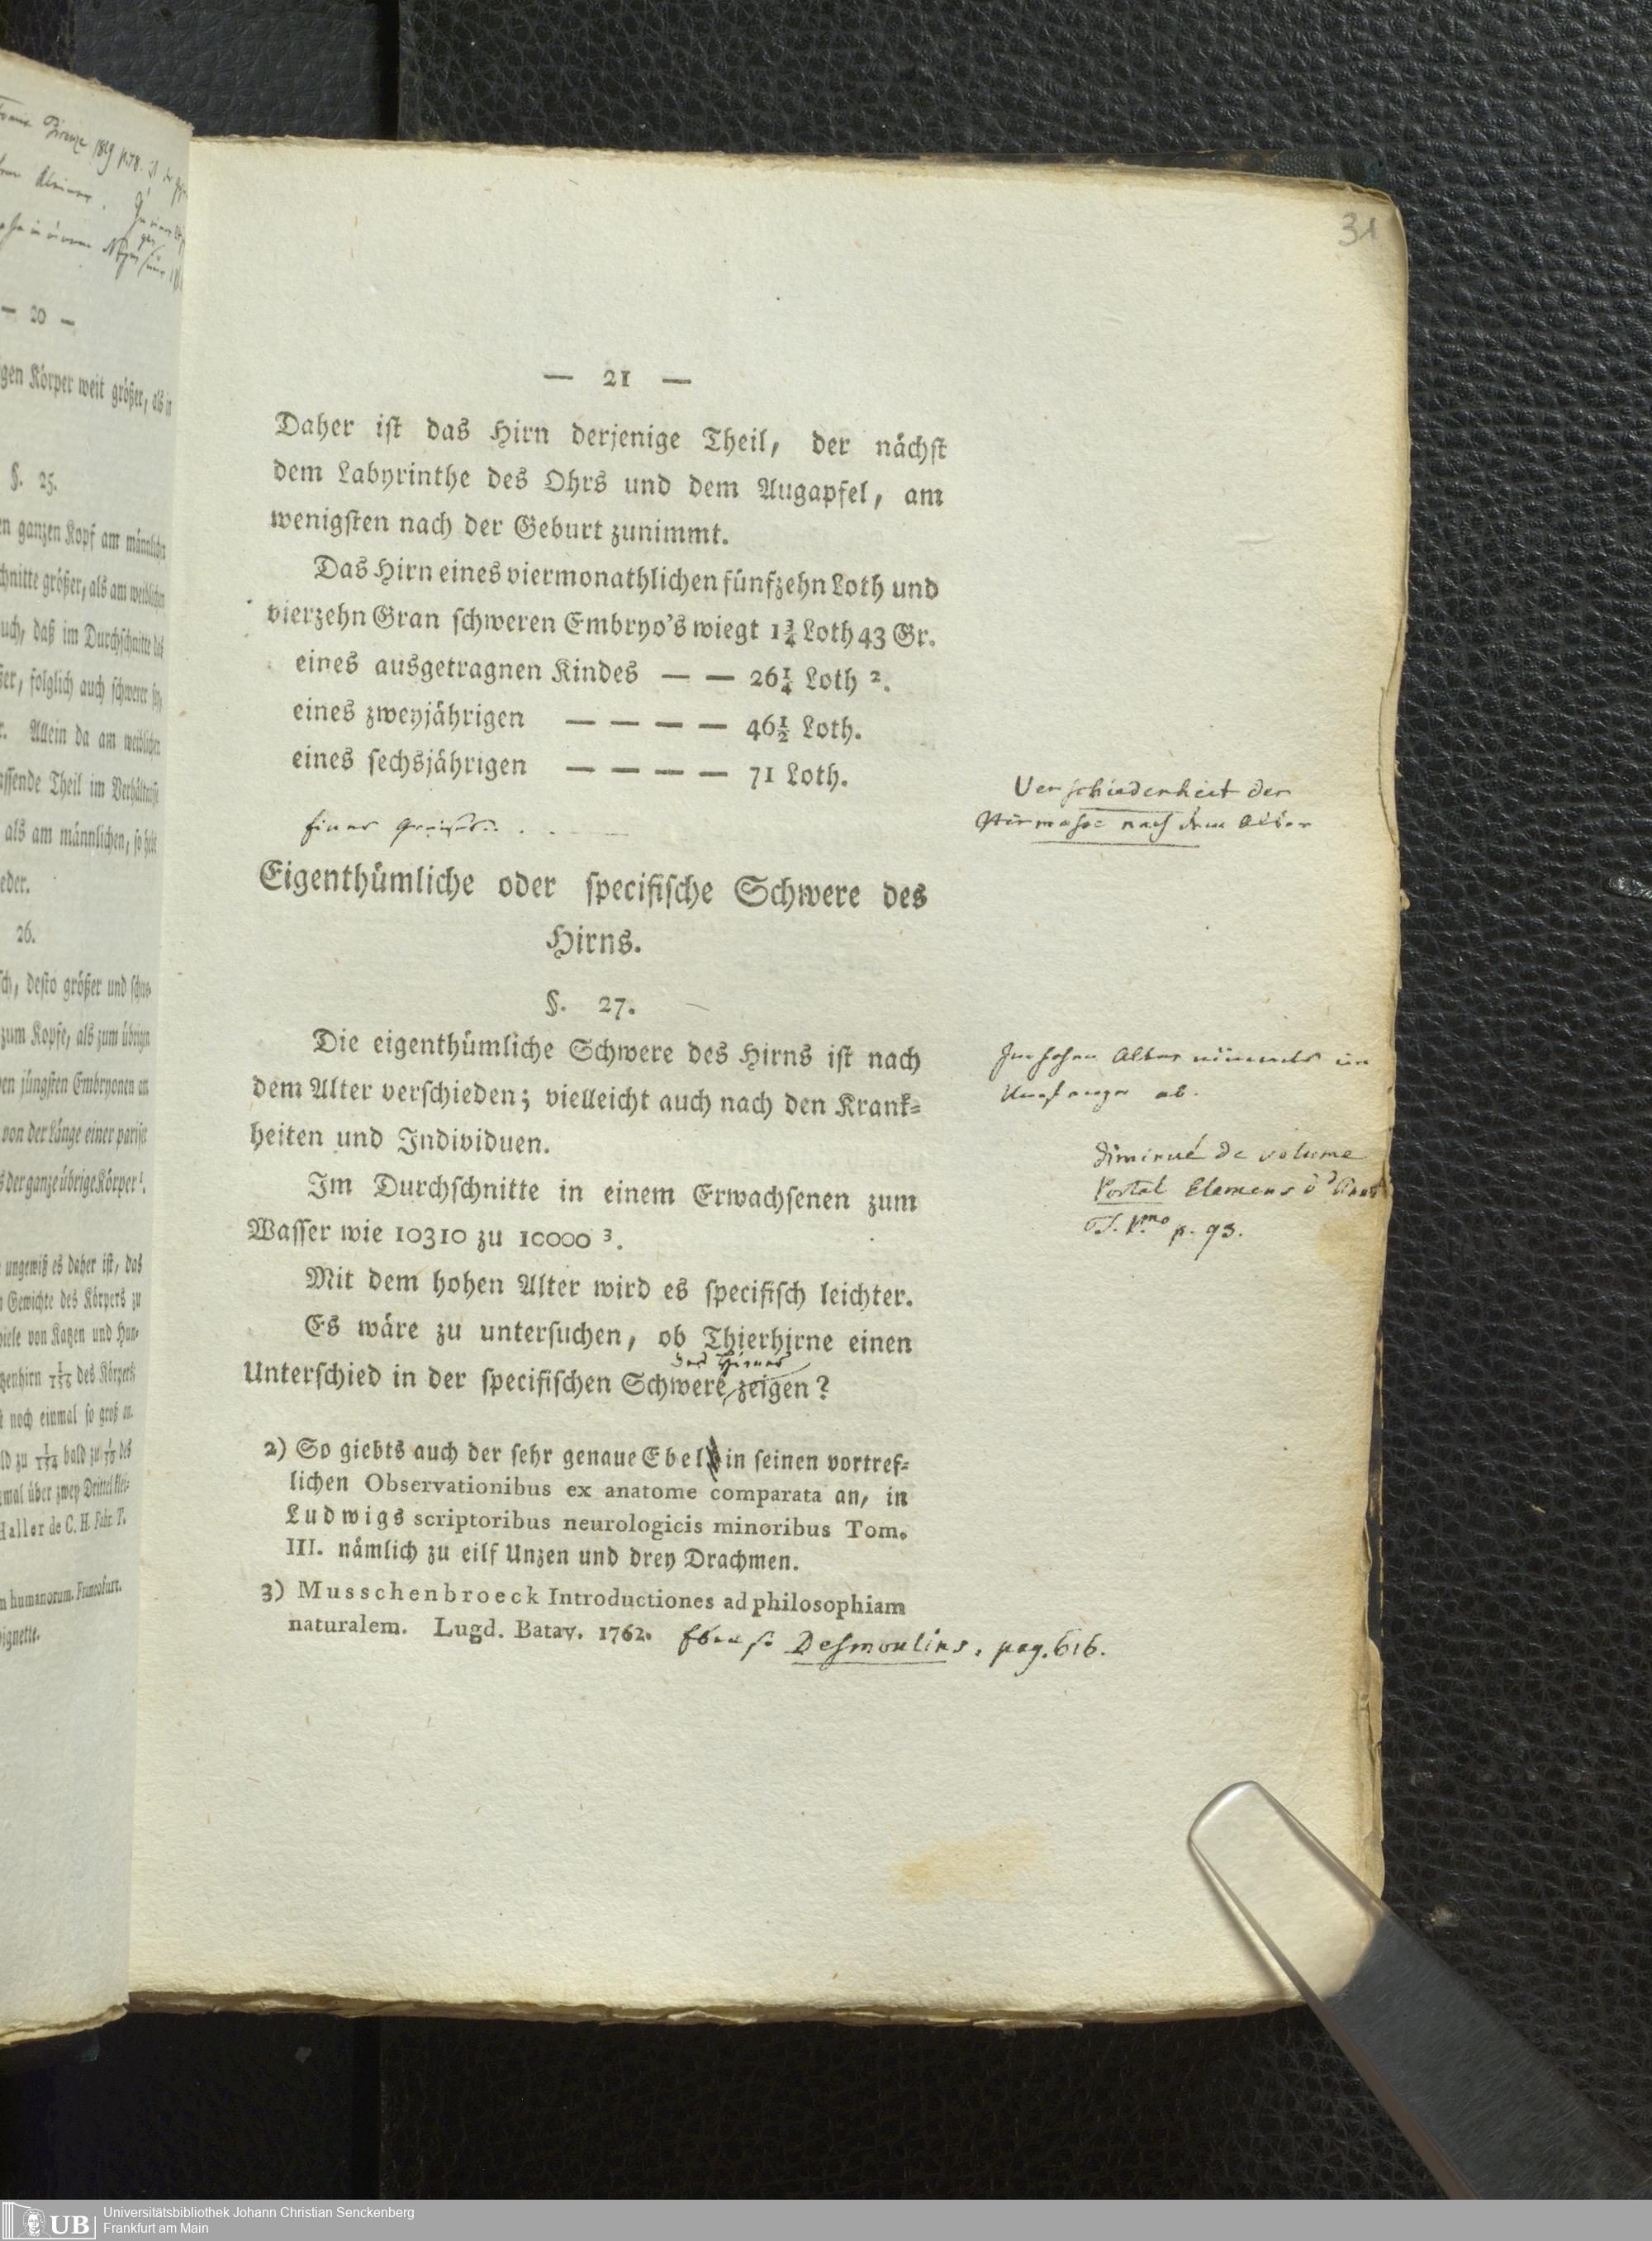 — 20 —
gen Körper weit größer, als in
§. 25.
en ganzen Kopf am männlichen
chnitte größer, als am weiblichen
uch, daß im Durchschnitte das
ßer, folglich auch schwerer sey,
r. Allein da am weiblichen
assende Theil im Verhältnisse
als am männlichen, so hält
eder.
26.
sch, desto größer und schwe-
zum Kopfe, als zum übrigen
en jüngsten Embryonen an
von der Länge einer pariser
s der ganze übrige Körper¹.
ungewiß es daher ist, das
n Gewichte des Körpers zu
piele von Katzen und Hun-
des Körpers
t noch einmal so groß an.
bald zu des
mal über zwey Drittel klei-
Haller de C. H. Fabr. T.
m humanorum. Francofurt.
Vignette.
31
— 21 —
Daher iſt das Hirn derjenige Theil, der nächſt
dem Labyrinthe des Ohrs und dem Augapfel, am
wenigſten nach der Geburt zunimmt.
Das Hirn eines viermonathlichen fünfzehn Loth und
vierzehn Gran ſchweren Embryo's wiegt 1¾ Loth 43 Gr.
eines ausgetragnen Kindes — — 26¼ Loth ².
eines zweyjährigen — — — — 46½ Loth.
eines ſechsjährigen — — — — 71 Loth.
Verschiedenheit der
Hirnmasse nach dem Alter
Eines Greises . . . —
Eigenthümliche oder ſpecifiſche Schwere des
Hirns.
§. 27.
Die eigenthümliche Schwere des Hirns iſt nach
dem Alter verſchieden; vielleicht auch nach den Krank⸗
heiten und Individuen.
Im hohen Alter nimmts im
Umfange ab.
diminué de volume
Portal Elemens d'Anat
p. 93.
Im Durchſchnitte in einem Erwachſenen zum
Waſſer wie 10310 zu 10000 ³.
Mit dem hohen Alter wird es ſpecifiſch leichter.
Es wäre zu unterſuchen, ob Thierhirne einen
des Hirnes
Unterſchied in der ſpecifiſchen Schwere zeigen?
2) So giebts auch der ſehr genaue Ebel in ſeinen vortref⸗
lichen Observationibus ex anatome comparata an, in
Ludwigs scriptoribus neurologicis minoribus Tom.
III. nämlich zu eilf Unzen und drey Drachmen.
3) Musschenbroeck Introductiones ad philosophiam
naturalem. Lugd. Batav. 1762. Eben so Desmoulins, pag. 616.
UB Universitätsbibliothek Johann Christian Senckenberg
Frankfurt am Main